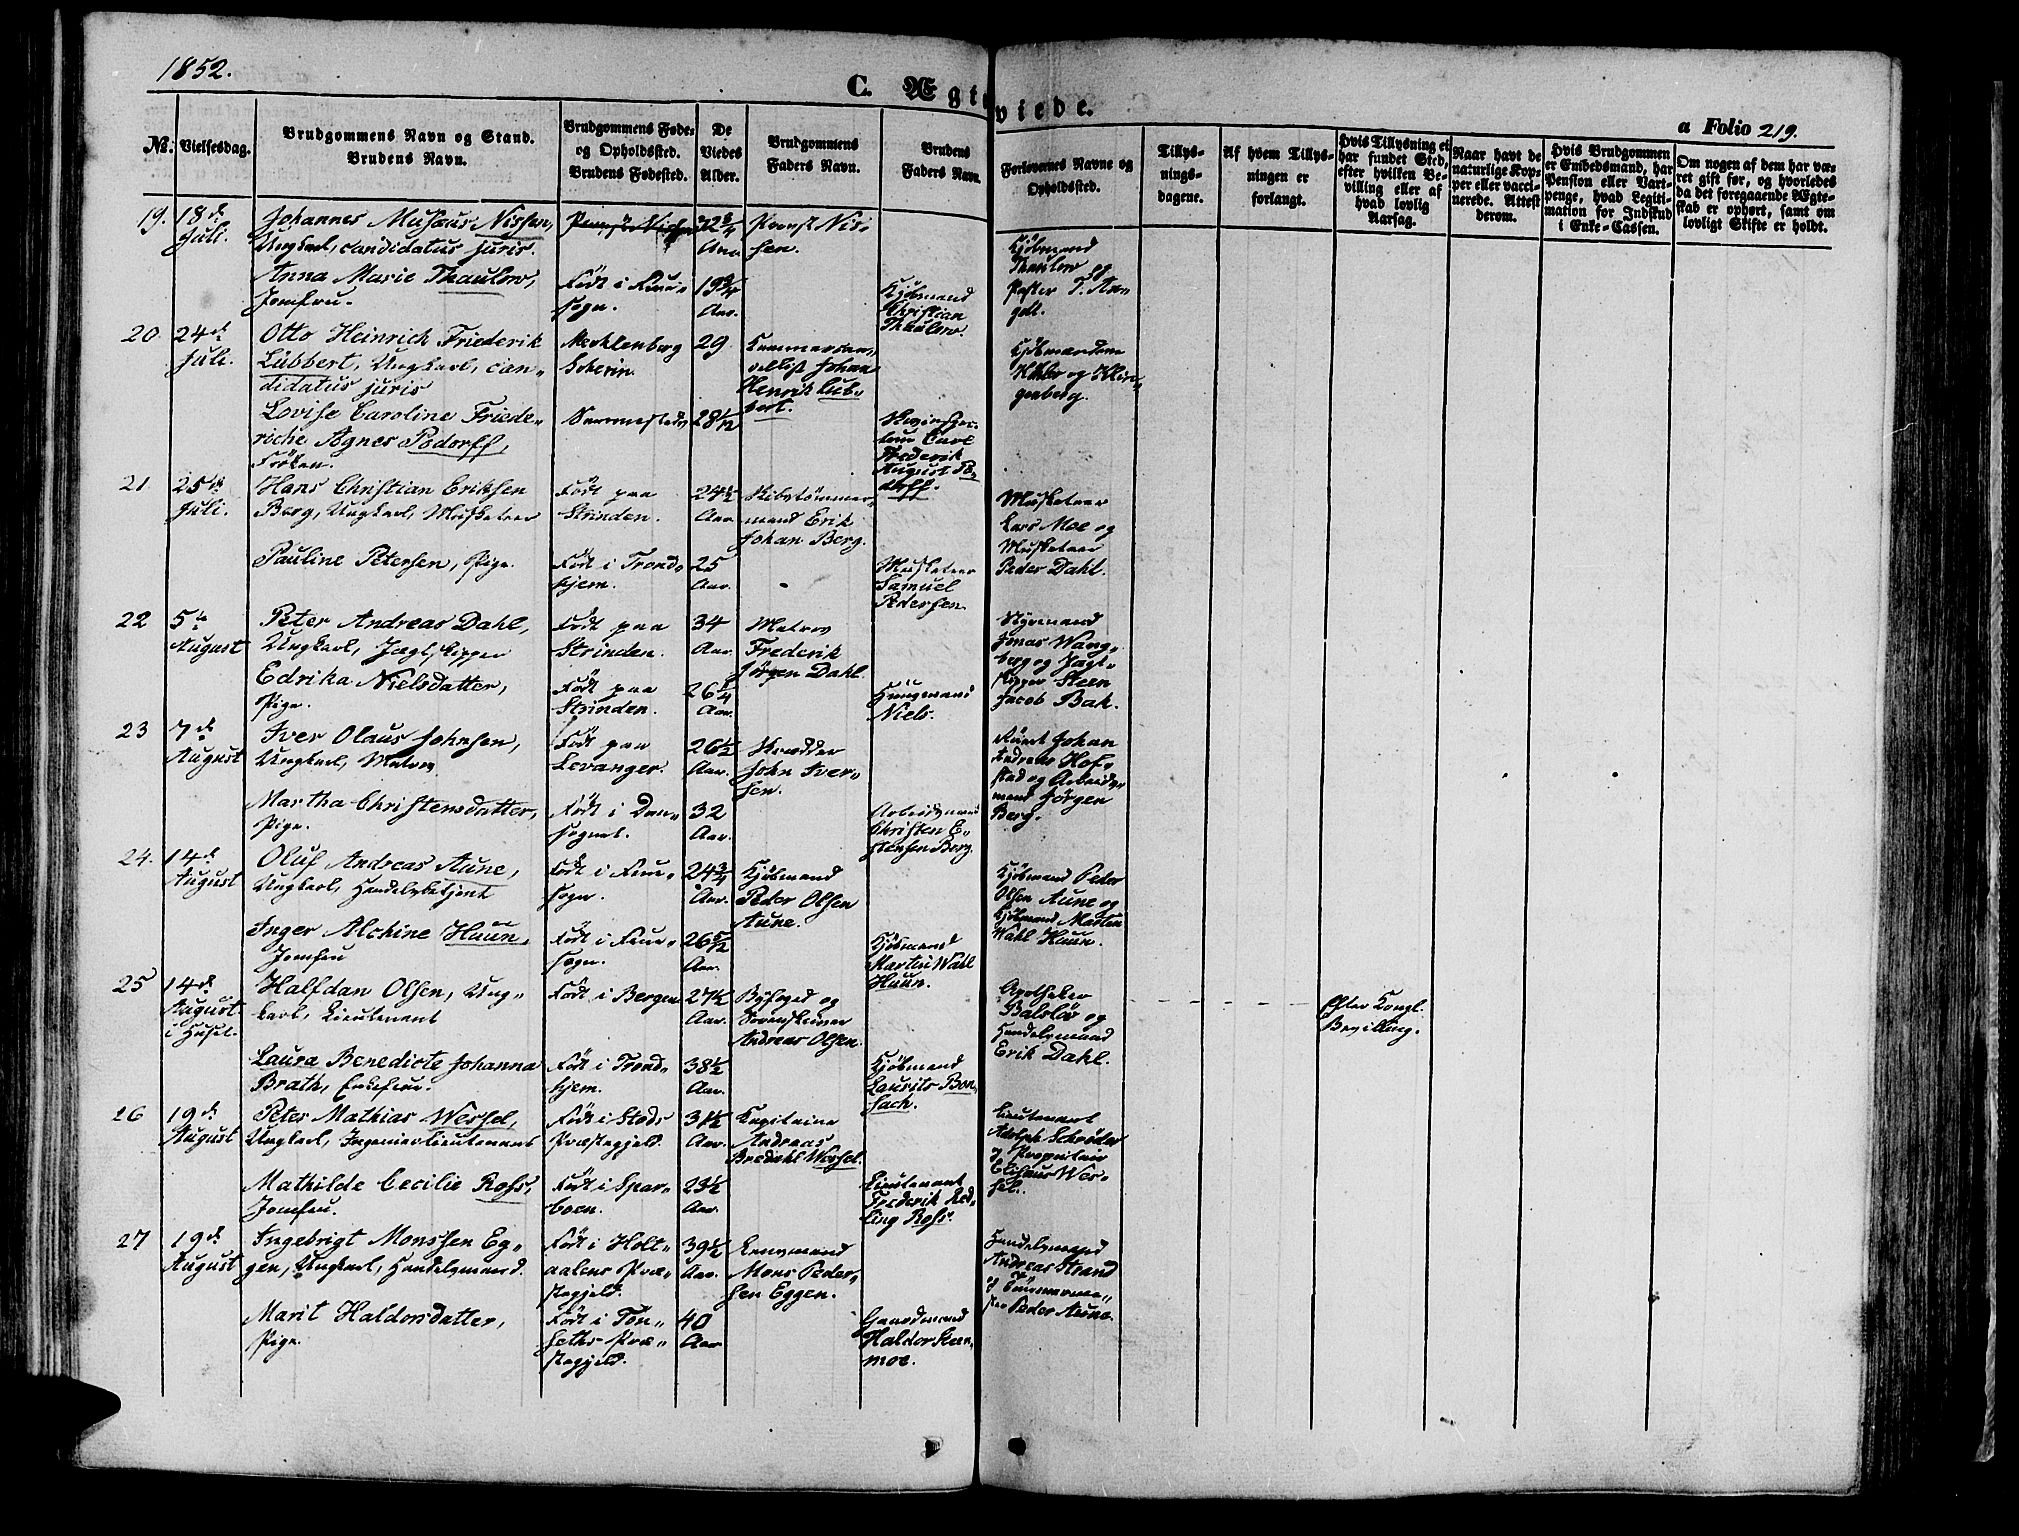 1852.
C. Ægteviede.
a Folio 219.
No. Vielsesdag.
Brudgommens Navn og Stand.
Brudens Navn.
Brudgommens Føde-
og Opholdssted.
Brudens Fødested.
De
Viedes
Alder.
Brudgommens
Faders Navn.
Brudens
Faders Navn.
Forlovernes Navne og
Opholdssted.
Tillys-
nings-
dagene.
Af hvem Tillys-
ningen er
forlangt.
Hvis Tillysning ei
har fundet Sted,
efter hvilken Be-
villing eller af
hvad lovlig
Aarsag.
Naar havt de
naturlige Kop-
per eller vacci-
nerede. Attest
derom.
Hvis Brudgommen
er Embedsmand, har
Pension eller Vart-
penge, hvad Legiti-
mation for Indskud
i Enke-Cassen.
Om nogen af dem har væ-
ret gift før, og hvorledes
da det foregaaende Ægte-
skab er ophørt, samt om
lovligt Skifte er holdt.
19. 18de
Juli.
Johannes Musæus Nissen,
Ungkarl, candidatus juris.
Anna Marie Thaulow,
Jomfru.
Født i Frue-
sogn.
Aar.
19 3/4
Aar.
Provst Nis-
sen.
Kjøbmand
Christian
Thaulow.
Kjøbmand
Thaulow og
20. 24de
Juli.
Otto Heinrich Friederik
Lübbert, Ungkarl, can-
didatus juris
Lovise Caroline Friede-
riche Agnes Podorff,
Frøken.
Mechlenberg
Scherin.
29
28 1/2
Johan
Henrik Lüb-
bert.
Carl
Frederik
August Po-
dorff.
Kjøbmændene
21 25de
Juli.
Hans Christian Eriksen
Berg, Ungkarl, Musketeer
Pauline Petersen, Pige.
Født paa
Strinden.
Født i Trond-
hjem.
24 1/2
Aar
25
Aar.
Skibstømmer-
mand Erik
Johan Berg.
Musketeer
Samuel
Pedersen.
Musketeer
Lars Moe og
Musketeer
Peder Dahl.
22 5te
August
Peter Andreas Dahl,
Ungkarl, Jægtskipper
Edrika Nielsdatter,
Pige.
Født paa
Strinden.
Født paa
Strinden.
34
Aar.
26 1/4
Aar.
Matros
Frederik
Jørgen Dahl.
Huusmand
Niels.
Styrmand
Jonas Wang-
berg og Jægt-
skipper Steen
Jacob Bak.
23 7de
August
Iver Olaus Johnsen,
Ungkarl, Matros
Martha Christensdatter,
Pige.
Født paa
Levanger.
Født i Dom-
sognet.
26 1/2
Aar.
32
Aar.
Skrædder
John Iver-
sen.
Arbeidsmand
Christen E-
stensen Berg.
Johan
Andreas Hof-
stad og Arbeids-
mand Jørgen
Berg.
24. 14de
August
Oluf Andreas Aune,
Ungkarl, Handelsbetjent
Inger Alchine Huun,
Jomfru
Født i Frue-
sogn.
Født i Frue-
sogn.
24 3/4
Aar.
26 5/12
Aar.
Kjøbmand
Peder Olsen
Aune.
Kjøbmand
Martin Wahl
Huun.
Kjøbmand Peder
Olsen Aune og
Kjøbmand Martin
Wahl Huun.
25 14de
August.
i Huset.
Halfdan Olsen, Ung-
karl, Lieutenant
Laura Benedicte Johanna
Brath, Enkefrue.
Født i Bergen
Født i Trond-
hjem.
27 1/2
Aar.
38 1/2
Aar.
Byfoged og
Sorenskriver
Andreas Olsen.
Kjøbmand
Laurits Bon-
sach.
Apotheker
Balsløv og
Handelsmand
Erik Dahl.
Efter Kongl.
Bevilling.
26 19de
August
Peter Mathias Wessel,
Ungkarl, Ingenieurlieutenant
Mathilde Cecilie Ross,
Jomfru.
Født i Stods
Præstegjeld.
Født i Spar-
boen.
31 1/2
Aar.
23 1/2
Aar.
Kapitaine
Andreas
Bredahl Wessel.
Lieutenant
Frederik Red-
ling Ross.
Lieutenant
Adolph Schrøder
og Proprietair
Elisæus Wes-
sel.
27 19de
August
Ingebrigt Monssen Eg-
gen, Ungkarl, Handelsmand.
Marit Haldorsdatter,
Pige.
Født i Holt-
aalens Præ-
stegjeld.
Født i Ton-
seths Præ-
stegjeld.
39 1/2
Aar.
40
Aar
Mons Peder-
sen Eggen.
Gaardmand
Haldor Steen-
moe.
Handelsmand
Andreas Strand
og Tømmerme-
ster Peder Aune.